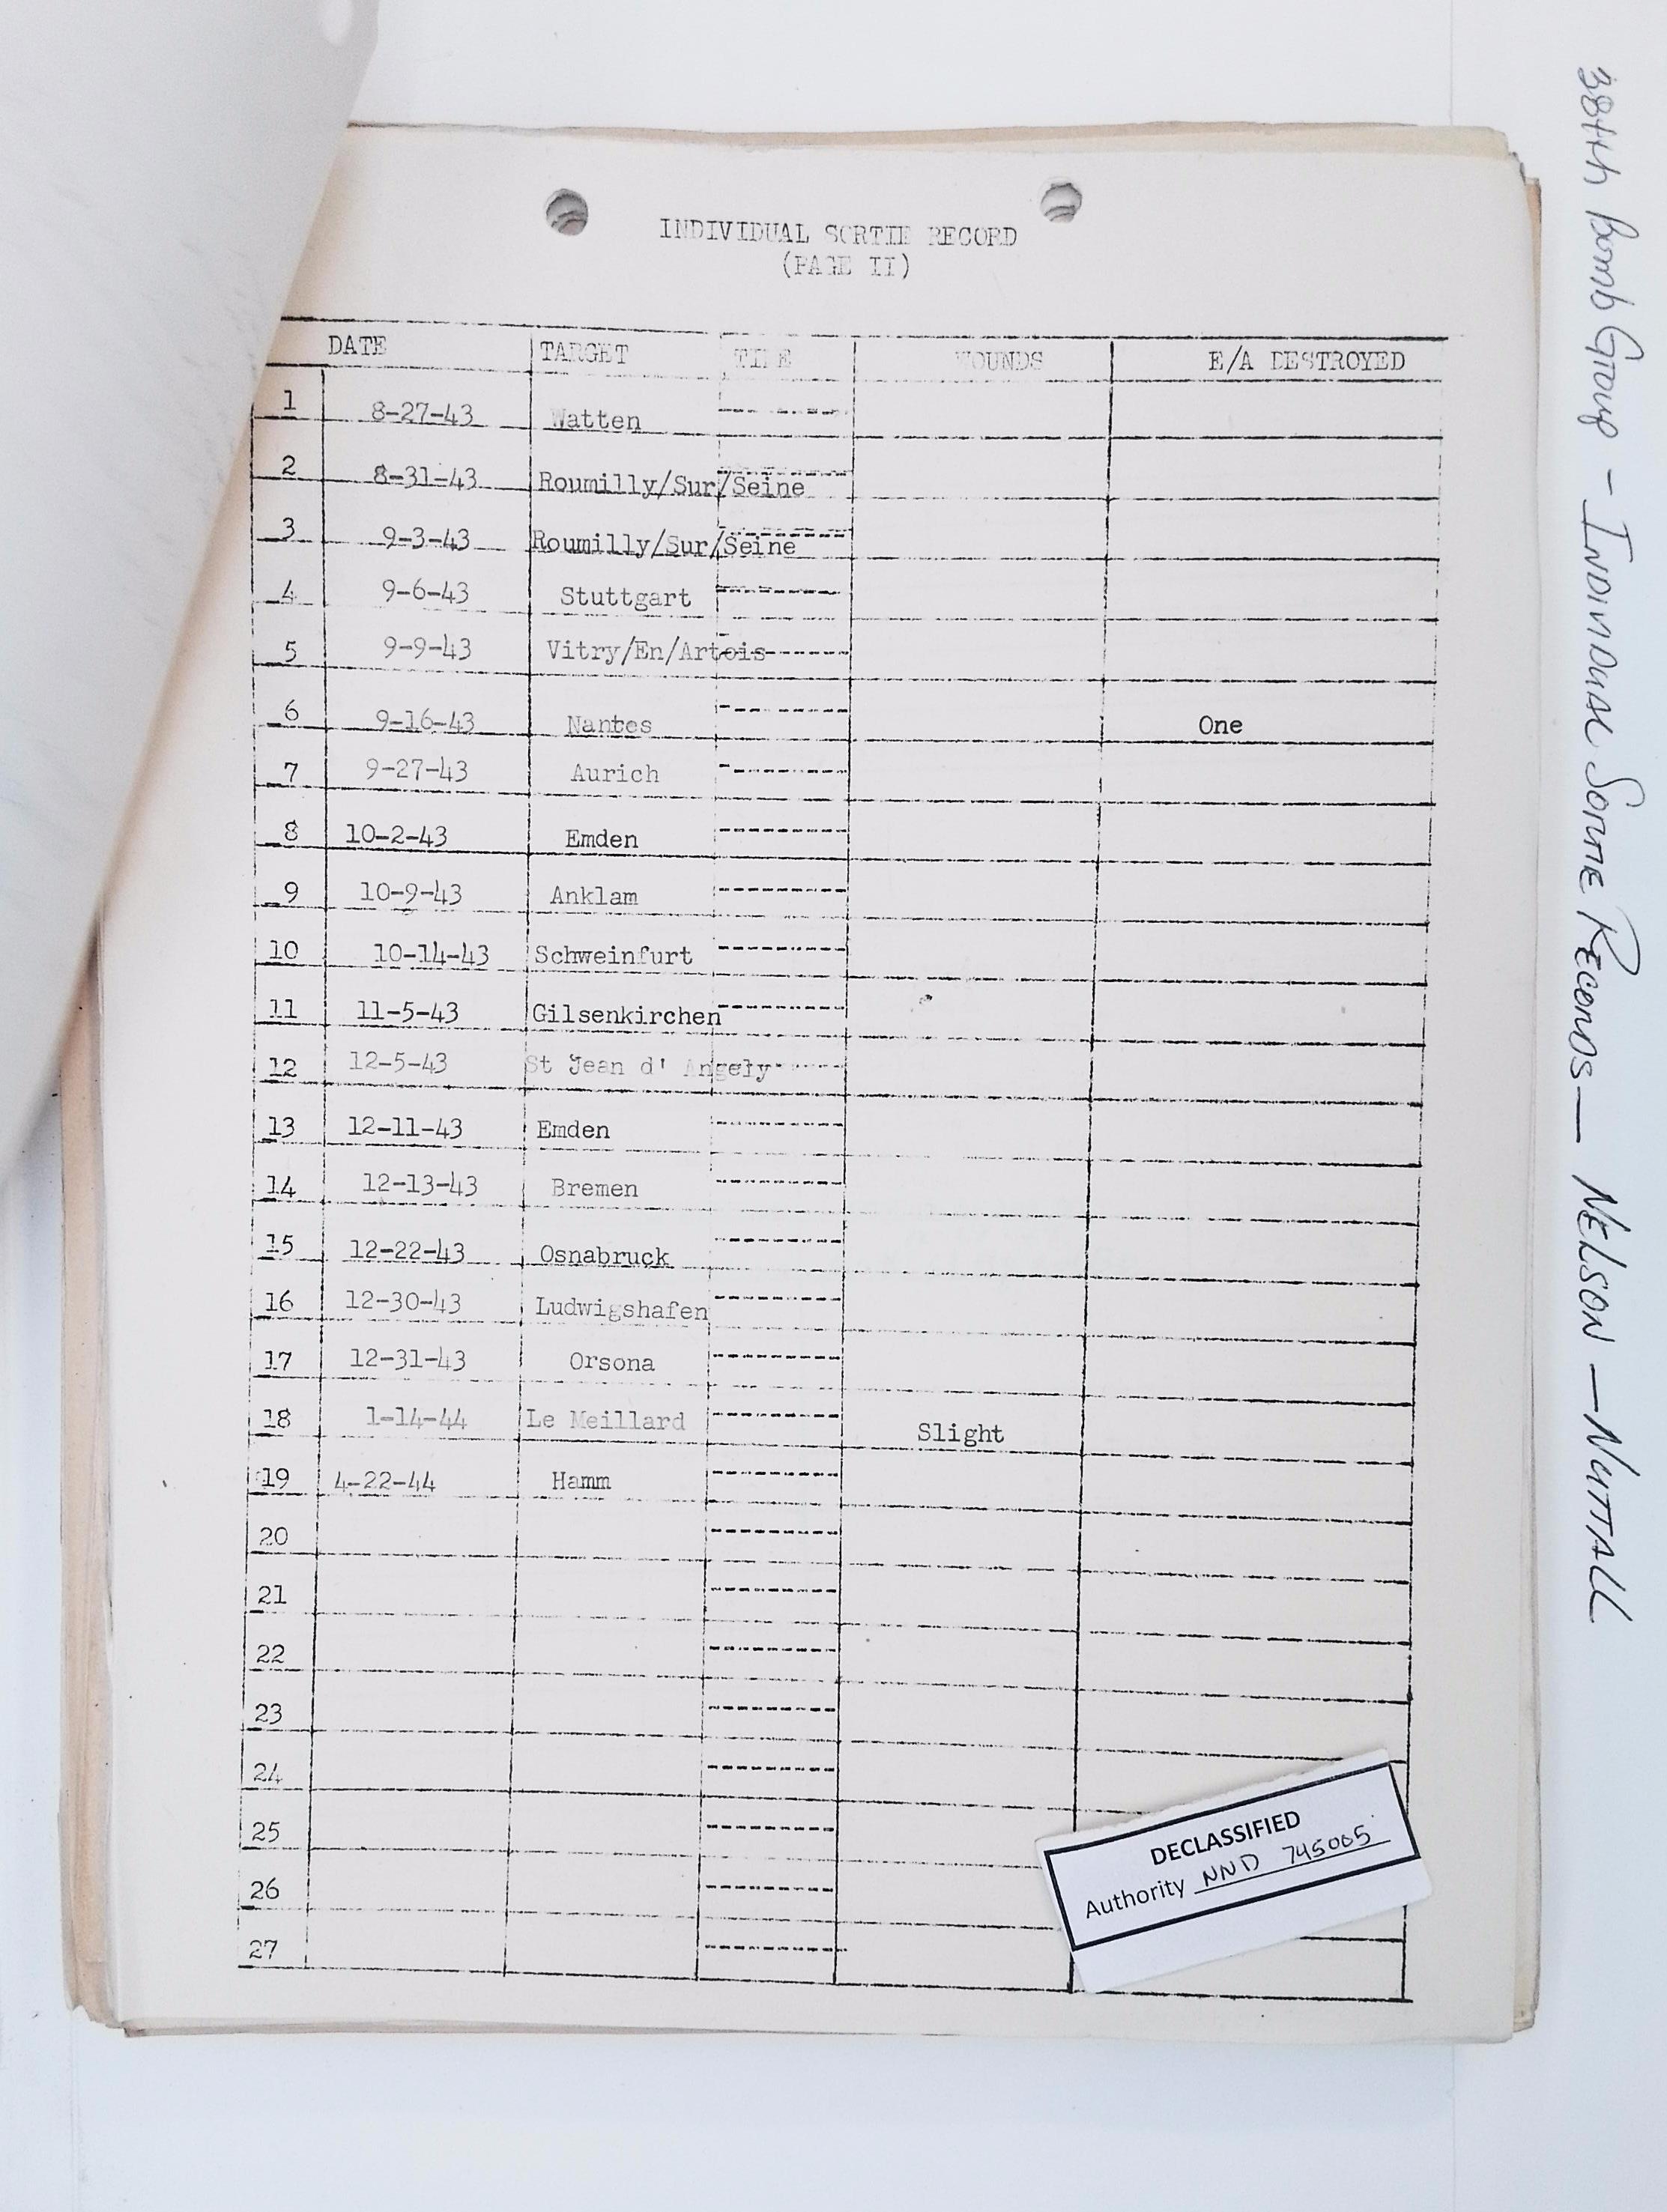 INDIVIDUAL SORTIE RECORD
(PAGE II)
DATE TARGET TIME WOUNDS E/A DESTROYED
1 8-27-43 Watten
2 8-31-43 Roumilly/Sur/Seine
3 9-3-43 Roumilly/Sur/Seine
4 9-6-43 Stuttgart
5 9-9-43 Vitry/En/Artois
6 9-16-43 Nantes One
7 9-27-43 Aurich
8 10-2-43 Emden
9 10-9-43 Anklam
10 10-14-43 Schweinfurt
11 11-5-43 Gilsenkirchen
12 12-5-43 St Jean d' Angely
13 12-11-43 Emden
14 12-13-43 Bremen
15 12-22-43 Osnabruck
16 12-30-43 Ludwigshafen
17 12-31-43 Orsona
18 1-14-44 Le Meillard Slight
19 4-22-44 Hamm
20
21
22
23
24
25
26
27
DECLASSIFIED
Authority NND 745005
384th Bomb Group - INDIVIDUAL SORTIE RECORDS — NELSON - NUTTALL